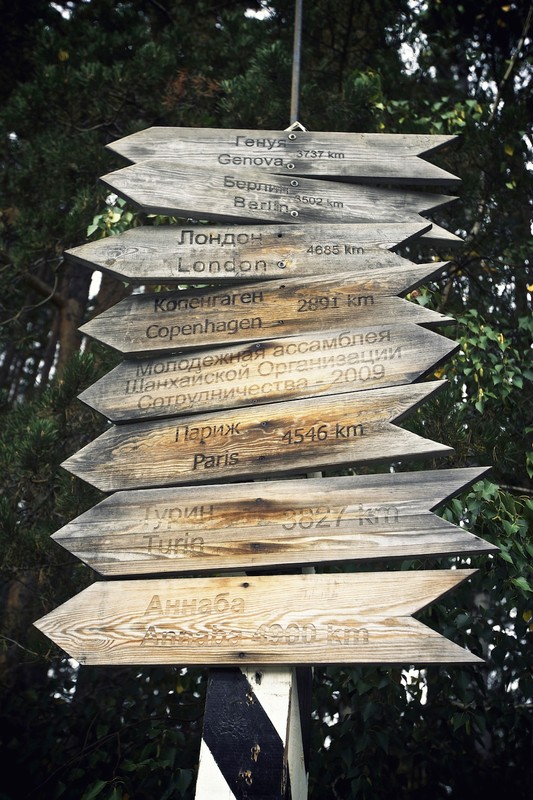 Генуя
Genova 3737 km
Берлин
Berlin 3502 km
Лондон
London 4685 km
Копенгаген
Copenhagen 2891 km
Молодежная ассамблея
Шанхайской Организации
Сотрудничества - 2009
Париж
Paris 4546 km
Турин
Turin 3827 km
Аннаба
Annaba 4960 km